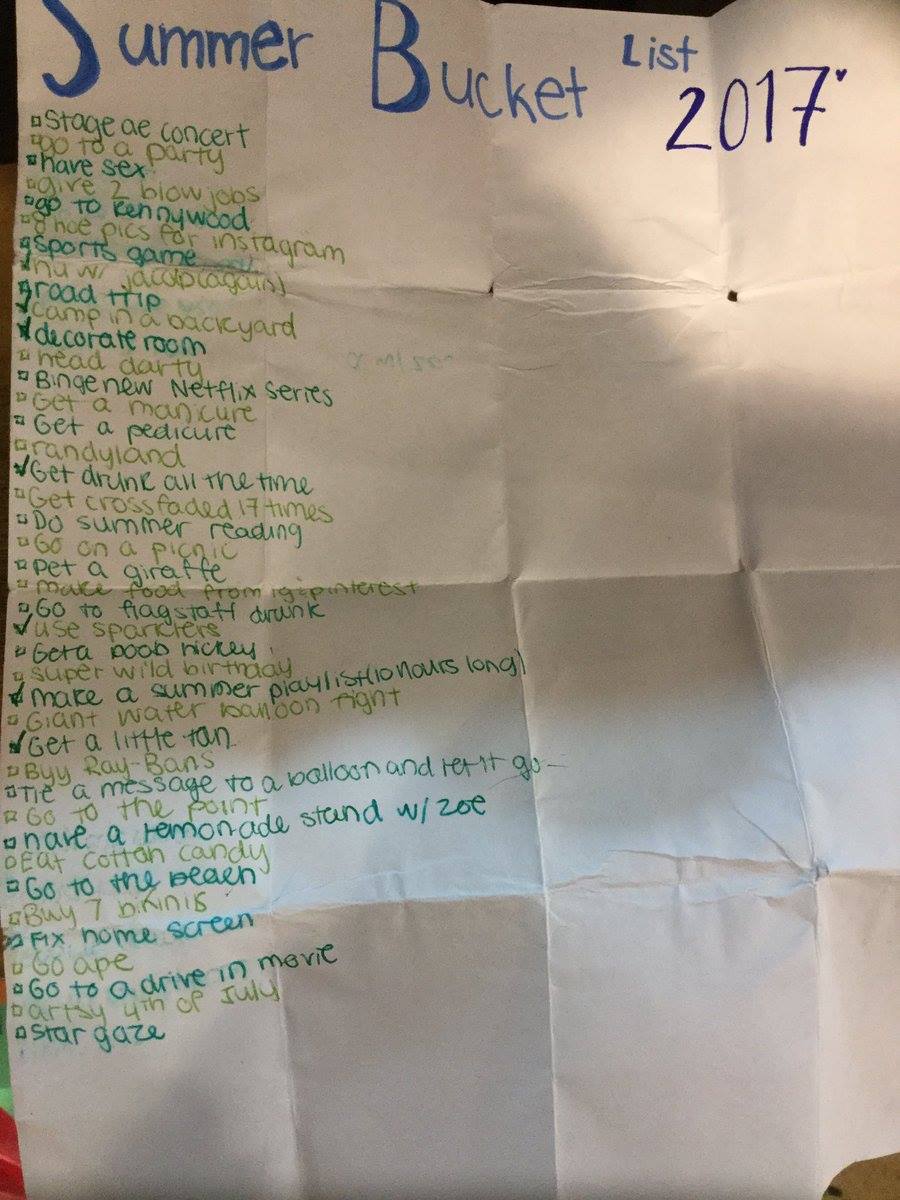 Summer Bucket List 2017
Stage ae concert
go to a party
have sex
give 2 blow jobs
go to Kennywood
8 hoe pics for instagram
sports game
hu w/ jacob(again)
road trip
camp in a backyard
decorate room
head darty
Binge new Netflix series
Get a manicure
Get a pedicure
randyland
Get drunk all the time
Get crossfaded 17 times
Do summer reading
Go on a picnic
pet a giraffe
make food from ig+pinterest
Go to flagstaff drunk
use sparklers
Get a boob hickey
super wild birthday
make a summer playlist(10 hours long)
Giant water balloon fight
Get a little tan
Byy Ray-Bans
Tie a message to a balloon and let it go
Go to the point
have a lemonade stand w/ zoe
Eat cotton candy
Go to the beach
Buy 7 bikinis
Fix home screen
Go ape
Go to a drive in movie
artsy 4th of July
star gaze